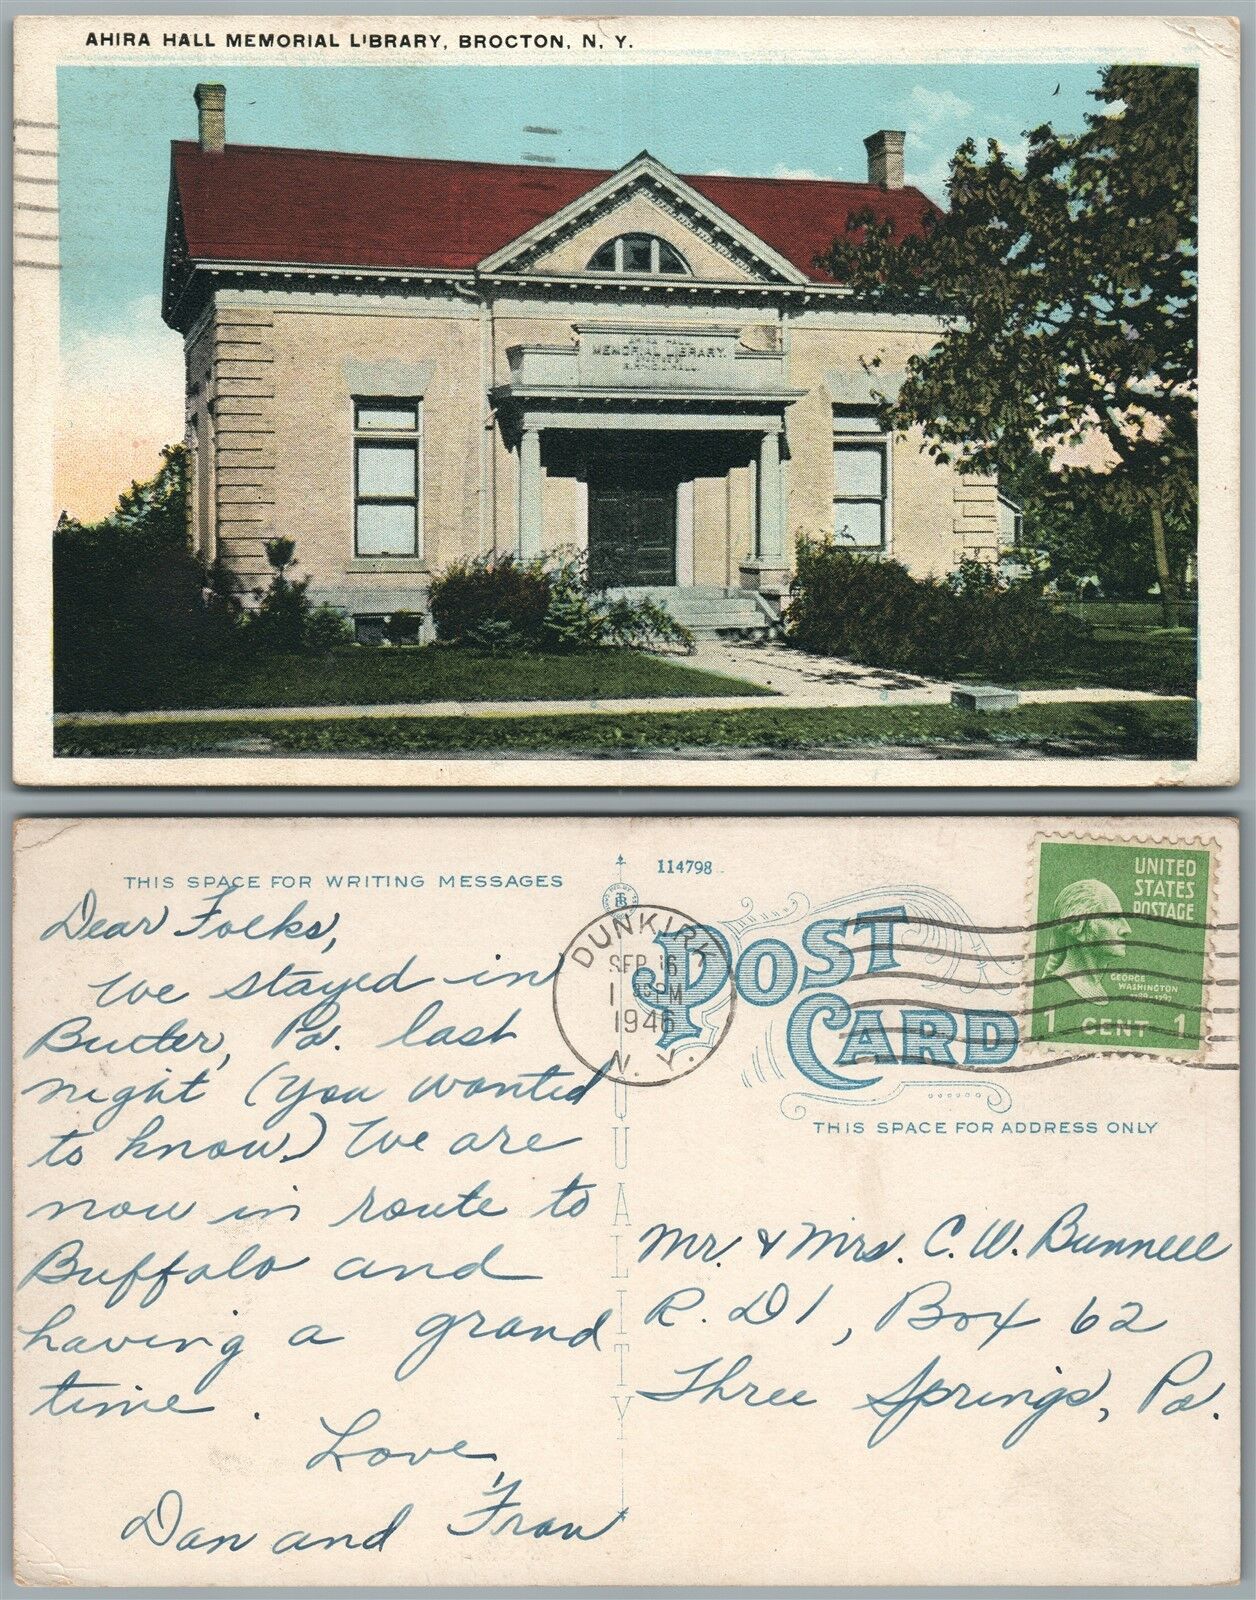 AHIRA HALL MEMORIAL LIBRARY, BROCTON, N. Y.
AHIRA HALL
MEMORIAL LIBRARY.
THIS SPACE FOR WRITING MESSAGES
114798
POST CARD
THIS SPACE FOR ADDRESS ONLY
QUALITY
DUNKIRK
SEP 16
1 PM
1946
N. Y.
UNITED
STATES
POSTAGE
GEORGE
WASHINGTON
1 CENT 1
Dear Folks,
We stayed in
Butler, Pa. last
night (you wanted
to know.) We are
now in route to
Buffalo and
having a grand
time.
Love,
Dan and Fran
Mr. & Mrs. C. W. Bunnell
R. D 1, Box 62
Three Springs, Pa.